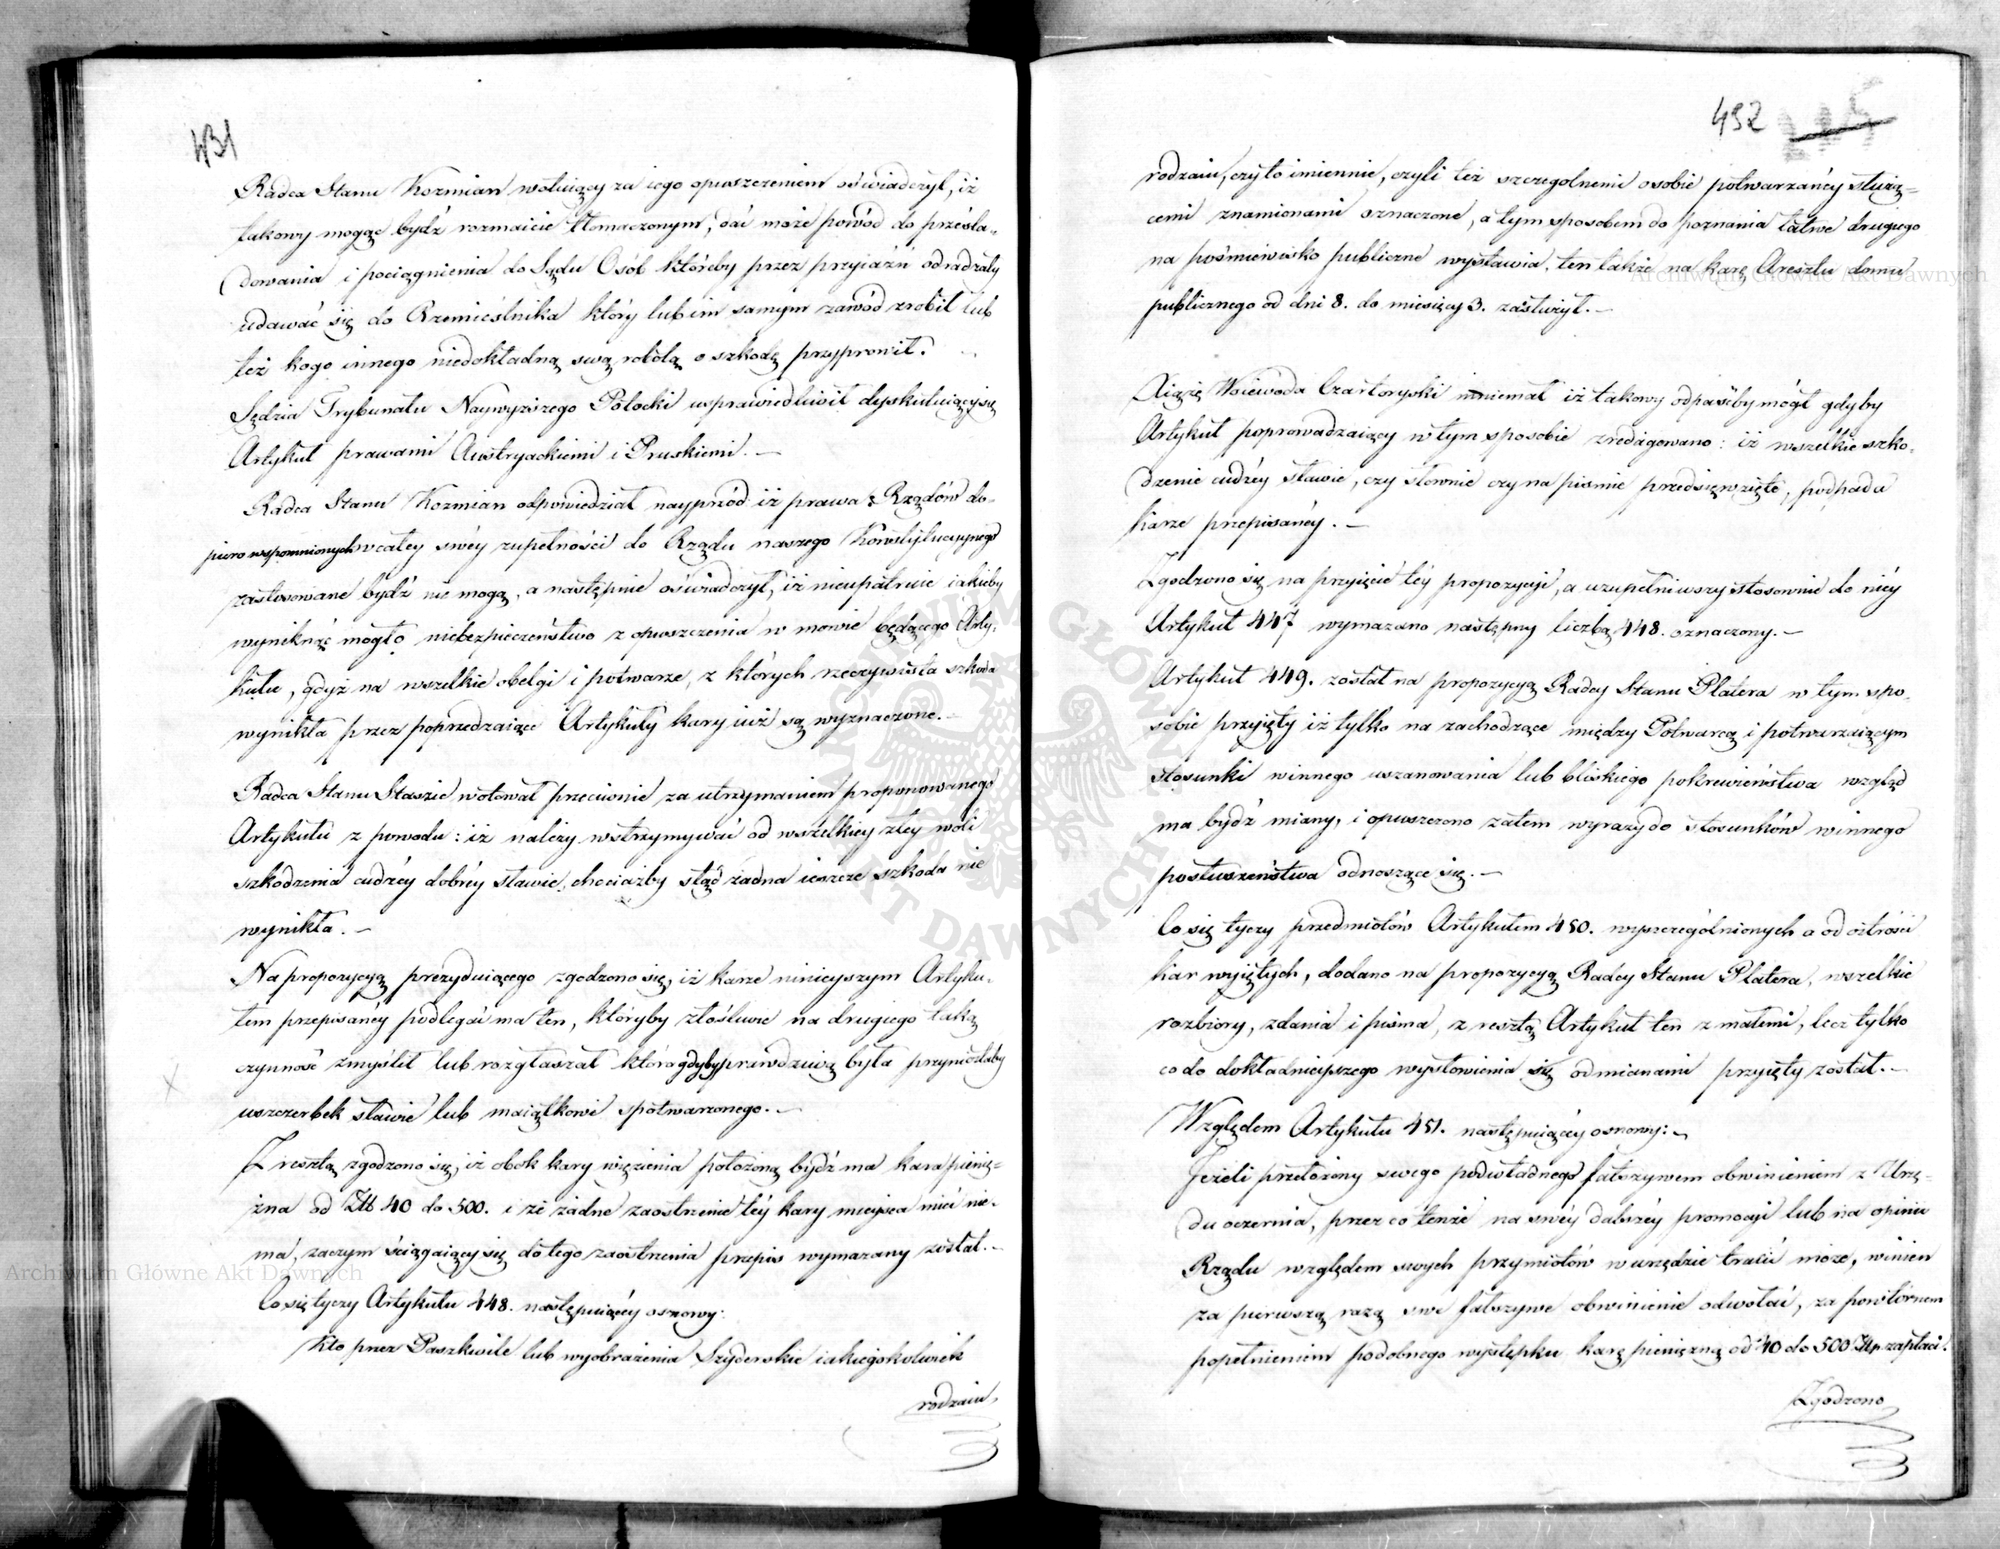 431
Radca Stanu Kozmian wotuiący za iego opuszczeniem oświadczył, iż
takowy mogąc bydź rozmaicie tłomaczonym, dać może powód do prześla-
dowania i pociągnienia do Sądu Osób któreby przez przyiaźń odradzały
udawać się do Rzemieślnika który lub im samym zawód zrobił lub
też kogo innego niedokładną swą robotą o szkodę przyprawił.
Sędzia Trybunału Naywyższego Potocki usprawiedliwił dyskutuiący się
Artykuł prawami Austryackiemi i Pruskiemi.
Radca Stanu Kozmian odpowiedział nayprzód iż prawa Rządów do-
piero wspomnionych w całey swéy zupełności do Rządu naszego Konstytucyynego
zastosowane bydź nie mogą, a następnie oświadczył, iż nieupatruie iakieby
wyniknąć mogło niebezpieczeństwo z opuszczenia w mowie będącego Arty-
kułu, gdyż na wszelkie obelgi i potwarze, z których rzeczywista szkoda
wynikła przez poprzedzaiące Artykuły kary iuż są wyznaczone.
Radca Stanu Staszic wotował przeciwnie za utrzymaniem proponowanego
Artykułu z powodu: iż należy wstrzymywać od wszelkiey złey woli
szkodzenia cudzéy dobréy sławie, chociażby stąd żadna ieszcze szkoda nie
wynikła.
Na propozycyą prezyduiącego zgodzono się, iż karze ninieyszym Artyku-
łem przepisanéy podlegać ma ten, któryby złośliwie na drugiego taką
czynność zmyślił lub rozgłaszał która gdyby prawdziwą była przyniosłaby
uszczerbek sławie lub maiątkowi spotwarzonego.
Z resztą zgodzono się, iż obok kary więzienia położoną bydź ma kara pienię-
żna od Zł 40 do 500. i że żadne zaostrzenie téy kary mieysca mieć nie-
ma, zaczym ściągaiący się do tego zaostrzenia przepis wymazany został.
Co się tyczy Artykułu 448. następuiącéy osnowy:
Kto przez Paszkwile lub wyobrażenia Szyderskie iakiegokolwiek
rodzaiu
492
rodzaiu, czy to imiennie, czyli też szczególnemi osobie potwarzanéy służą-
cemi znamionami oznaczone, a tym sposobem do poznania łatwe drugiego
na pośmiewisko publiczne wystawia, ten także na karę Aresztu domu
publicznego od dni 8. do miesięcy 3. zasłużył.
Xiążę Woiewoda Czartoryski mniemał iż takowy odpaśćby mógł gdyby
Artykuł poprzedzaiący w tym sposobie zredagowano: iż wszelkie szko-
dzenie cudzéy sławie, czy słownie czy na piśmie przedsięwzięte, podpada
karze przepisanéy.
Zgodzono się na przyięcie téy propozycyi, a uzupełniwszy stosownie do niéy
Artykuł 447 wymazano następny liczbą 448. oznaczony.
Artykuł 449. został na propozycyą Radcy Stanu Platera w tym spo-
sobie przyięty iż tylko na zachodzące między Potwarcą i potwarzaiącym
stosunki winnego uszanowania lub bliskiego pokrewieństwa wzgląd
ma bydź miany, i opuszczono zatem wyrazy do stosunków winnego
posłuszeństwa odnoszące się.
Co się tyczy przedmiotów Artykułem 450. wyszczególnionych a od ostrości
kar wyiętych, dodano na propozycyą Radcy Stanu Platera, wszelkie
rozbiory, zdania i pisma, z resztą Artykuł ten z małemi, lecz tylko
co do dokładnieyszego wysłowienia się odmianami przyięty został.
Względem Artykułu 451. następuiącéy osnowy:
Jeżeli przełożony swego podwładnego fałszywem obwinieniem z Urzę-
du oczernia, przez co tenże na swéy dalszéy promocyi lub na opinii
Rządu względem swych przymiotów w urzędzie tracić może, winien
za pierwszą razą swe fałszywe obwinienie odwołać, za powtórnem
popełnieniem podobnego występku karę pieniężną od 40 do 500 Złp. zapłaci.
Zgodzono
Archiwum Główne Akt Dawnych
Archiwum Główne Akt Dawnych
ARCHIWUM GŁÓWNE AKT DAWNYCH